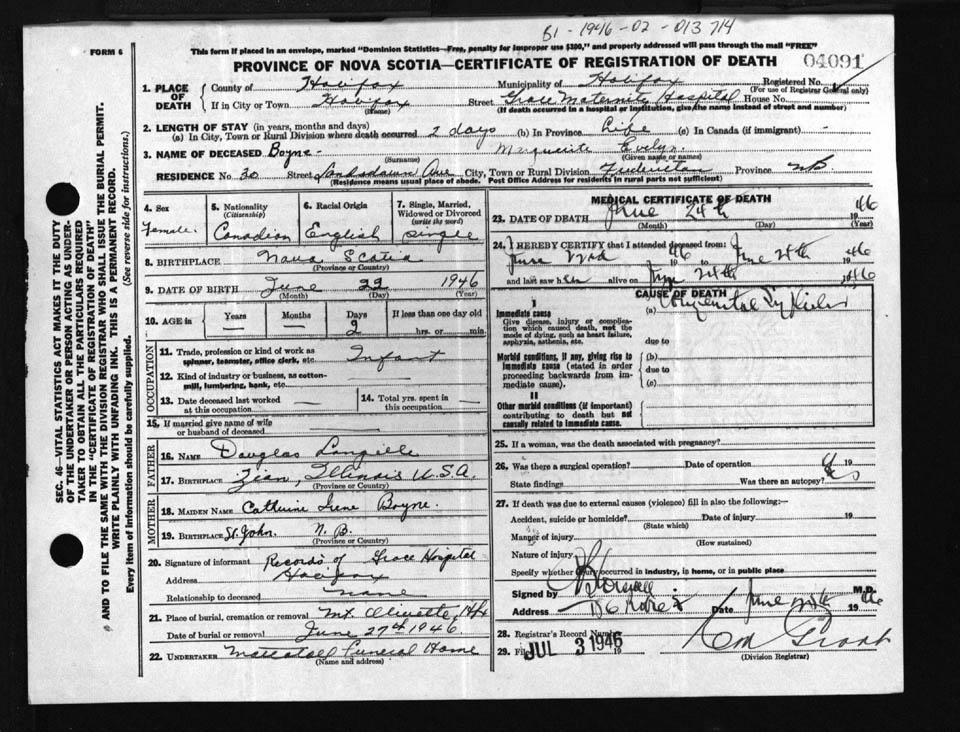 B1-1946-02-013714
FORM 6
This form if placed in an envelope, marked "Dominion Statistics—Free, penalty for improper use $300," and properly addressed will pass through the mail "FREE"
PROVINCE OF NOVA SCOTIA—CERTIFICATE OF REGISTRATION OF DEATH
04091
1. PLACE OF DEATH
County of Halifax
Municipality of Halifax
Registered No.
(For use of Registrar General only)
If in City or Town Halifax
(Name)
Street Grace Maternity Hospital House No.
(If death occurred in a hospital or institution, give the name instead of street and number)
2. LENGTH OF STAY (in years, months and days)
(a) In City, Town or Rural Division where death occurred 2 days (b) In Province Life (c) In Canada (if immigrant) -
3. NAME OF DECEASED Boyne - Marguerite Evelyn
(Surname) (Given name or names)
RESIDENCE No. 30 Street Lansdowne Ave City, Town or Rural Division Fredericton Province NB
(Residence means usual place of abode. Post Office Address for residents in rural parts not sufficient)
4. Sex
Female
5. Nationality
(Citizenship)
Canadian
6. Racial Origin
English
7. Single, Married, Widowed or Divorced
(write the word)
single
8. BIRTHPLACE Nova Scotia
(Province or Country)
9. DATE OF BIRTH June 22 1946
(Month) (Day) (Year)
10. AGE in
Years Months Days If less than one day old
— — 2 hrs. or min.
OCCUPATION
11. Trade, profession or kind of work as spinner, teamster, office clerk, etc. Infant
12. Kind of industry or business, as cotton-mill, lumbering, bank, etc.
13. Date deceased last worked at this occupation
14. Total yrs. spent in this occupation
15. If married give name of wife or husband of deceased
FATHER
16. NAME Douglas Langille
17. BIRTHPLACE Zion, Illinois U.S.A.
(Province or Country)
MOTHER
18. MAIDEN NAME Catherine Irene Boyne.
19. BIRTHPLACE St. John. N.B.
(Province or Country)
20. Signature of informant Records of Grace Hospital
Address Halifax
Relationship to deceased none
21. Place of burial, cremation or removal Mt. Olivette, Hfx
Date of burial or removal June 27th 1946
22. UNDERTAKER Funeral Home
(Name and address)
MEDICAL CERTIFICATE OF DEATH
23. DATE OF DEATH June 24th 1946
(Month) (Day) (Year)
24. I HEREBY CERTIFY that I attended deceased from:
June 22nd 1946 to June 24th 1946
and last saw her alive on June 24th 1946
CAUSE OF DEATH
I
Immediate cause
Give disease, injury or complication which caused death, not the mode of dying, such as heart failure, asphyxia, asthenia, etc.
(a) Congenital Syphilis
due to
Morbid conditions, if any, giving rise to immediate cause (stated in order proceeding backwards from immediate cause).
(b)
due to
(c)
II
Other morbid conditions (if important) contributing to death but not causally related to immediate cause.
25. If a woman, was the death associated with pregnancy?
26. Was there a surgical operation? Date of operation 19
State findings Was there an autopsy?
27. If death was due to external causes (violence) fill in also the following:—
Accident, suicide or homicide? Date of injury 19
(State which)
Manner of injury
(How sustained)
Nature of injury
Specify whether injury occurred in industry, in home, or in public place
Signed by M.D.
Address Date June 1946
28. Registrar's Record Number
29. Filed JUL 3 1946 19
(Division Registrar)
SEC. 46—VITAL STATISTICS ACT MAKES IT THE DUTY OF THE UNDERTAKER OR PERSON ACTING AS UNDERTAKER TO OBTAIN ALL THE PARTICULARS REQUIRED IN THE "CERTIFICATE OF REGISTRATION OF DEATH"
AND TO FILE THE SAME WITH THE DIVISION REGISTRAR WHO SHALL ISSUE THE BURIAL PERMIT.
WRITE PLAINLY WITH UNFADING INK. THIS IS A PERMANENT RECORD.
Every item of information should be carefully supplied. (See reverse side for instructions.)